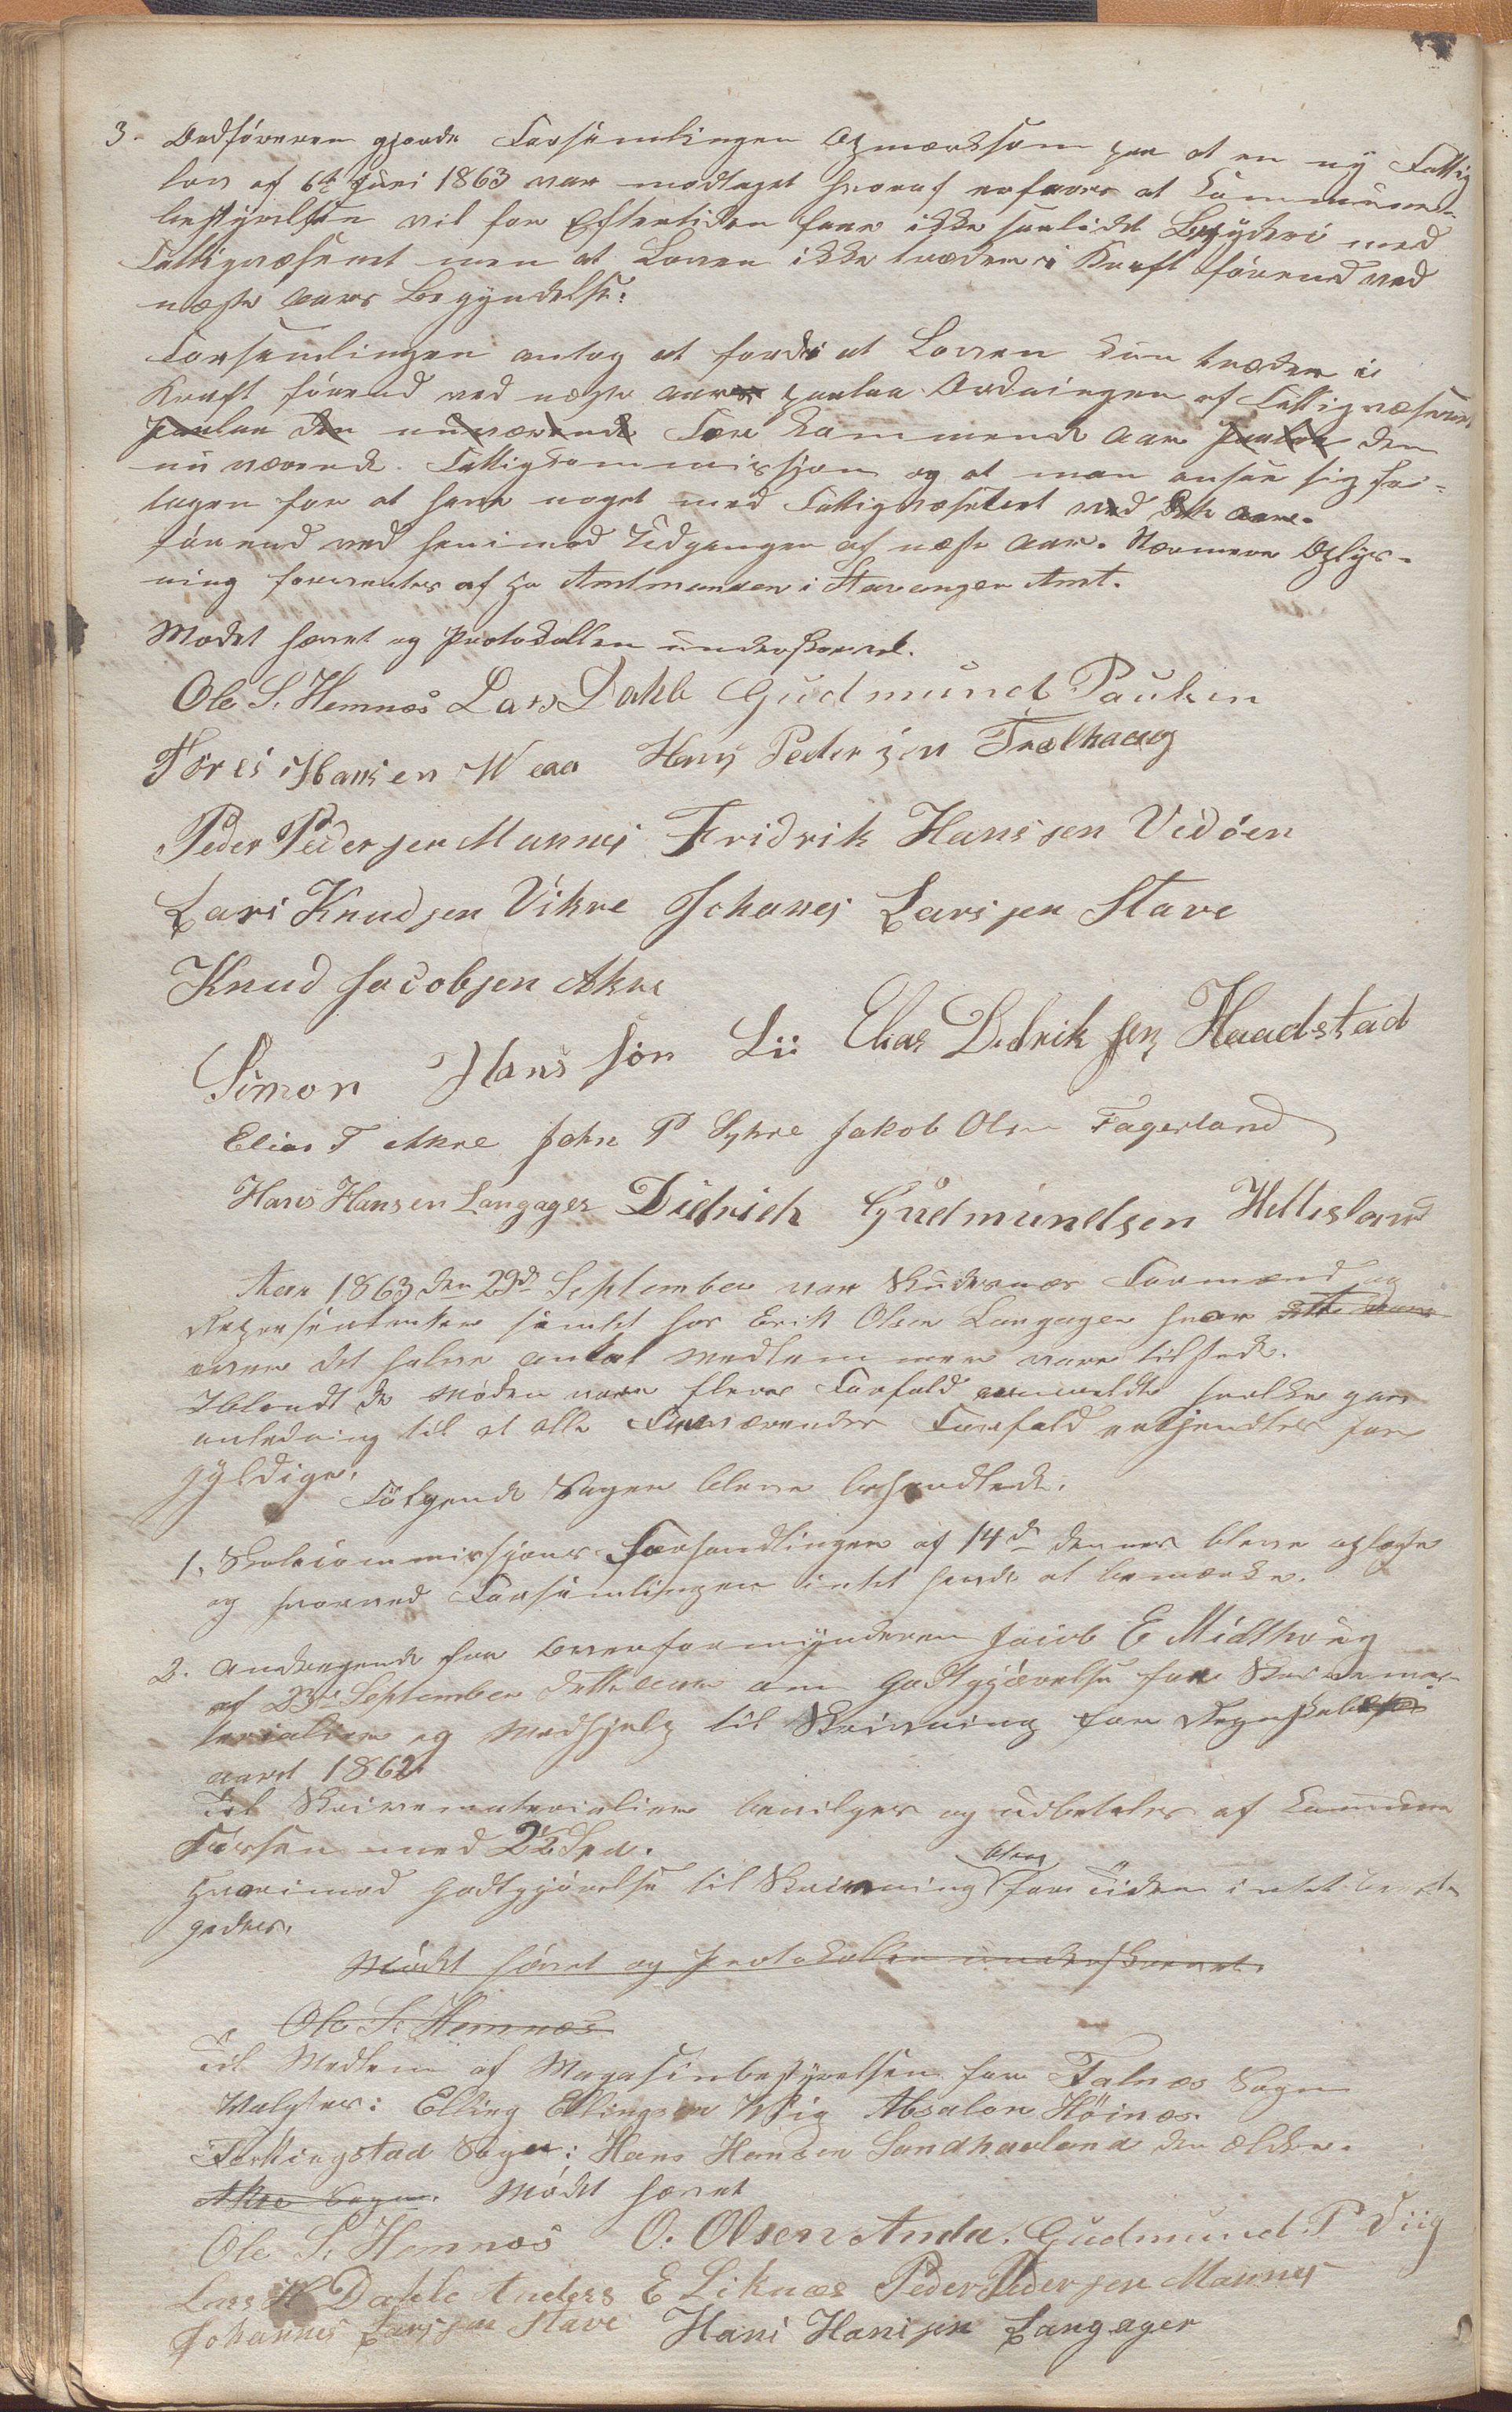 3. Ordføreren gjorde Forsamlingen Opmærksom paa at en ny Fattig
lov af 6te Juni 1863 var modtaget hvoraf erfares at Commune-
bestyrelsen vil for Eftertiden faae ikke saalidet Bryderi med
Fattigvæsenet men at Loven ikke træder i Kraft førend ved
næste Aars Begyndelse.
Forsamlingen antog at fordi at Loven træder i
Kraft førend ved næste Aar paalaa Ordningen af Fattigvæsenet
paalaa den nuværende For kommende Aar paalaa den
nuværende Fattigkommissjon og at man ansaa sig fri-
tagen for at have noget med Fattigvæsenet ved dette Aar.
førend ved henimod Udgangen af næste Aar. Nærmere Oplys-
ning forventes af Hr Amtmanden i Stavanger Amt.
Mødet hævet og Protokollen underskrevet.
Ole S. Hemnæs Lars Dahle Gudmund Paulsen
Hansen Waa Hans Pedersen Trælhaug
Peder Pedersen Mannes Fridrik Hanssen Vedøen
Lars Knudsen Vikre Johanes Larssen Stave
Knud Jacobsen Akre
Simon Hans søn Lii Elias Didriksen Haadstad
Elias T Akre John P Sykre Jakob Olsen Fagerland
Hans Hansen Langager Didrich Gudmundsen Hettesland
Aar 1863 den 29de September var Skudesnæs Formænd og
Repersentanter samlet hos Erik Olsen Langager hvor
over det halve antal Medlemmer vare tilstede.
Iblandt de Møden vare flere Forfald anmeldte hvilke gav
anledning til at alle Fraværendes Forfald erkjendtes for
gyldige.
Følgende Sager bleve behandlede.
1. Skolecommissjons Forhandlinger af 14de dennes bleve oplæste
og hvorved Forsamlingen intet havde at bemærke.
2. Andragende fra Overformynderen Jacob E Midthoug
af 23de September dette Aar om Godtgjørelse for Skrivema-
terialier og Medhjelp til Skrivning for Regnskabs
aaret 1862
Til Skrivematerialier bevilges og udbetales af Commune
Cassen med 2½ Spd.
Hvorimod Godtgjørelse til Skrivning blev for Tiden intet
gedes.
Mødet hævet og Protokollen underskrevet.
Ole S. Hemnæs
Til Medlem af Magasinbestyrelsen for Falnæs Sogn
Valgtes: Elling Ellingsen Wiig Absalon Høinæs.
Ferkingstad Sogn: Hans Hansen Sandhauland den ældre.
Akre Sogn. Mødet hævet
Ole S. Hemnæs O. Olsen Anda. Gudmund P Viig
Lars H Dahle Anders E Liknæs Peder Pedersen Mannes
Johannes Larssen Stave Hans Hanssen Langager